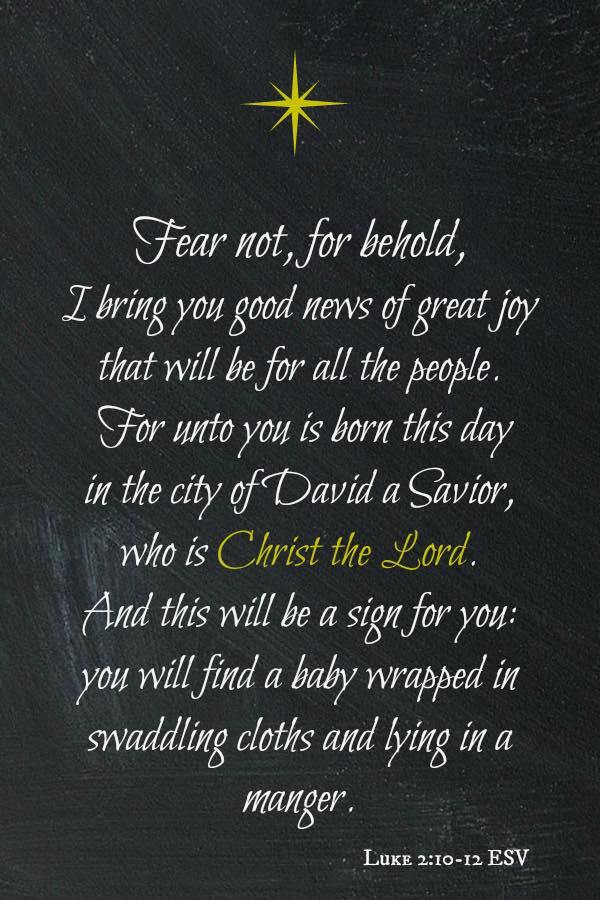 Fear not, for behold,
I bring you good news of great joy
that will be for all the people.
For unto you is born this day
in the city of David a Savior,
who is Christ the Lord.
And this will be a sign for you:
you will find a baby wrapped in
swaddling cloths and lying in a
manger.
Luke 2:10-12 ESV